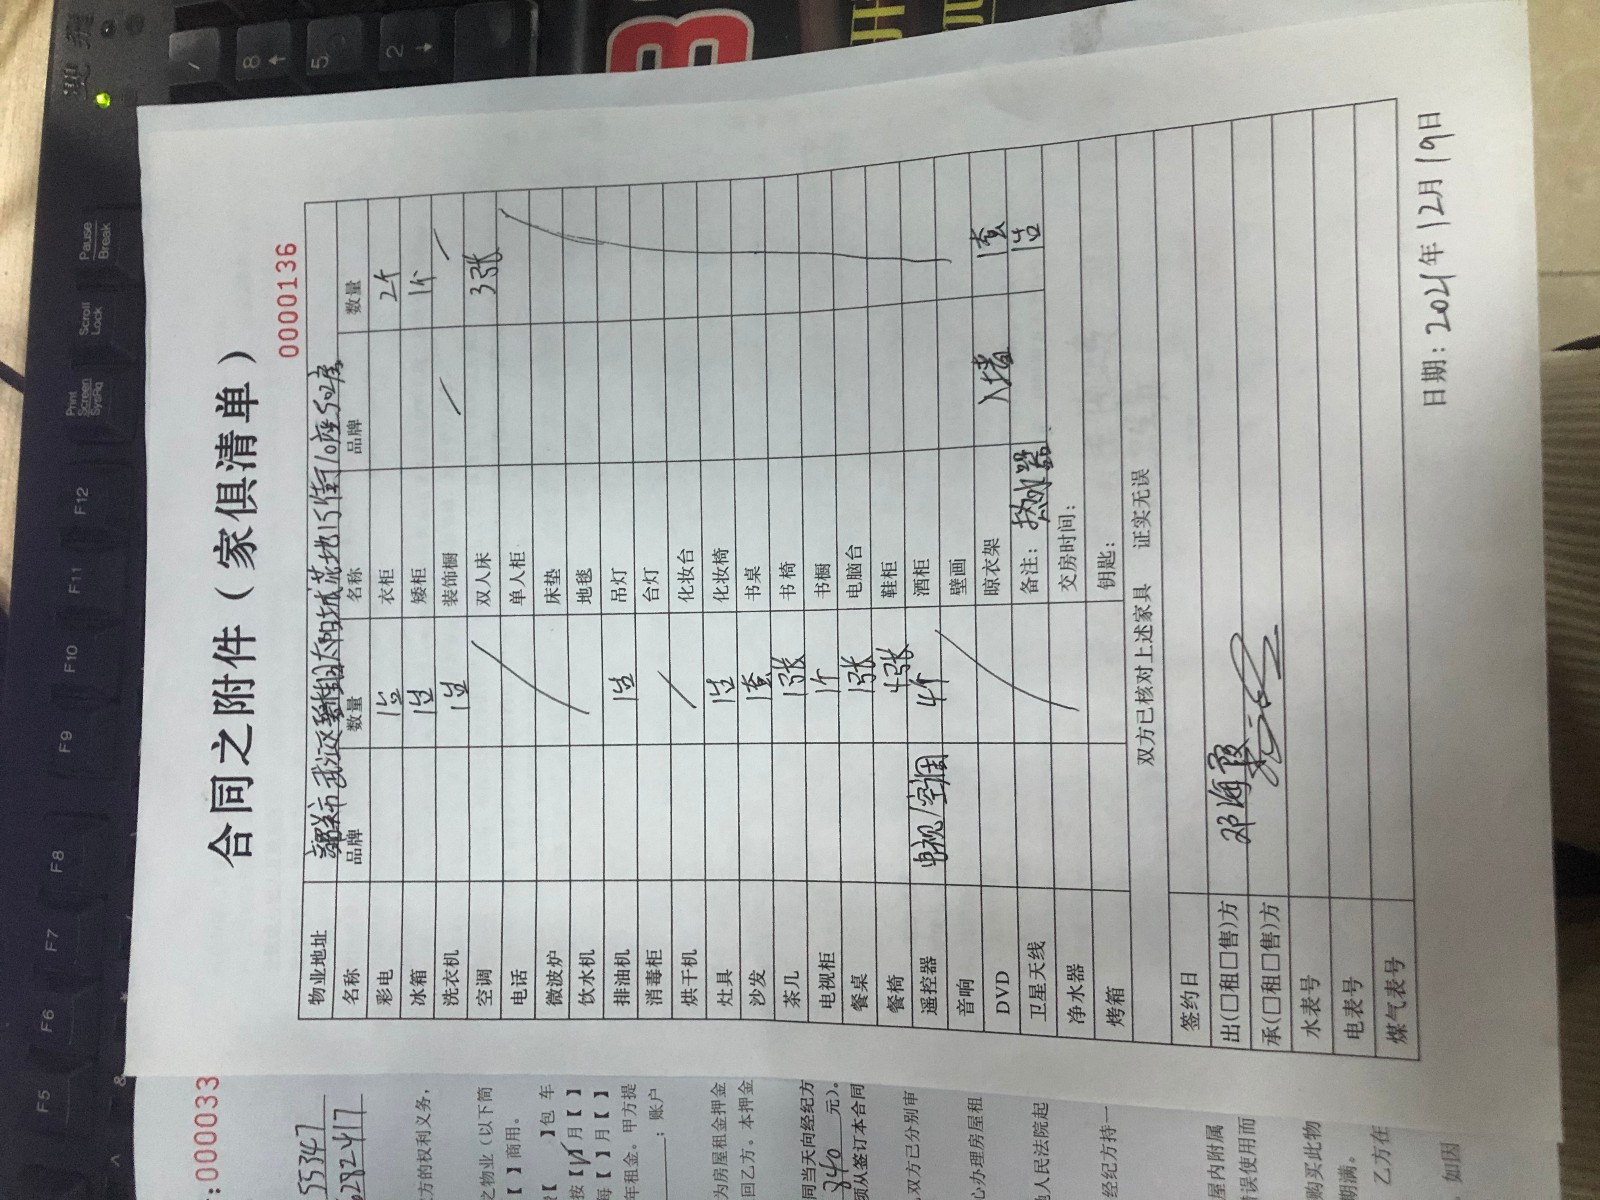 合同之附件（家俱清单）
0000136
物业地址 韶关市武江区碧桂园太阳城花地15街10座502房
名称 品牌 数量 名称 品牌 数量
彩电 1台 衣柜 2个
冰箱 1台 矮柜 1个
洗衣机 1台 装饰橱
空调 双人床 3张
电话 单人柜
微波炉 床垫
饮水机 地毯
排油机 1台 吊灯
消毒柜 台灯
烘干机 化妆台
灶具 1台 化妆椅
沙发 1套 书桌
茶几 1张 书椅
电视柜 1个 书橱
餐桌 1张 电脑台
餐椅 4张 鞋柜
遥控器 电视/空调 4个 酒柜
音响 壁画
DVD 晾衣架 入墙 1套
卫星天线 备注： 热水器 1台
净水器 交房时间：
烤箱 钥匙：
双方已核对上述家具 证实无误
签约日
出(□租□售)方 邓海霞
承(□租□售)方
水表号
电表号
煤气表号
日期：2021年12月19日
:000033
55347
6282417
方的权利义务，
之物业（以下简
【 】商用。
【 】包 车
按【√】月【 】
每【 】月【 】
年租金。甲方提
；账户
为房屋租金押金
回乙方。本押金
同当天向经纪方
840 元)。
须从签订本合同
双方已分别审
心办理房屋租
人民法院起
经纪方持一
屋内附属
误使用而
购买此物
期满。
乙方在
如因
F5
F6
F7
F8
F9
F10
F11
F12
Print Screen SysRq
Scroll Lock
Pause Break
/
8
5
2
&
*
^